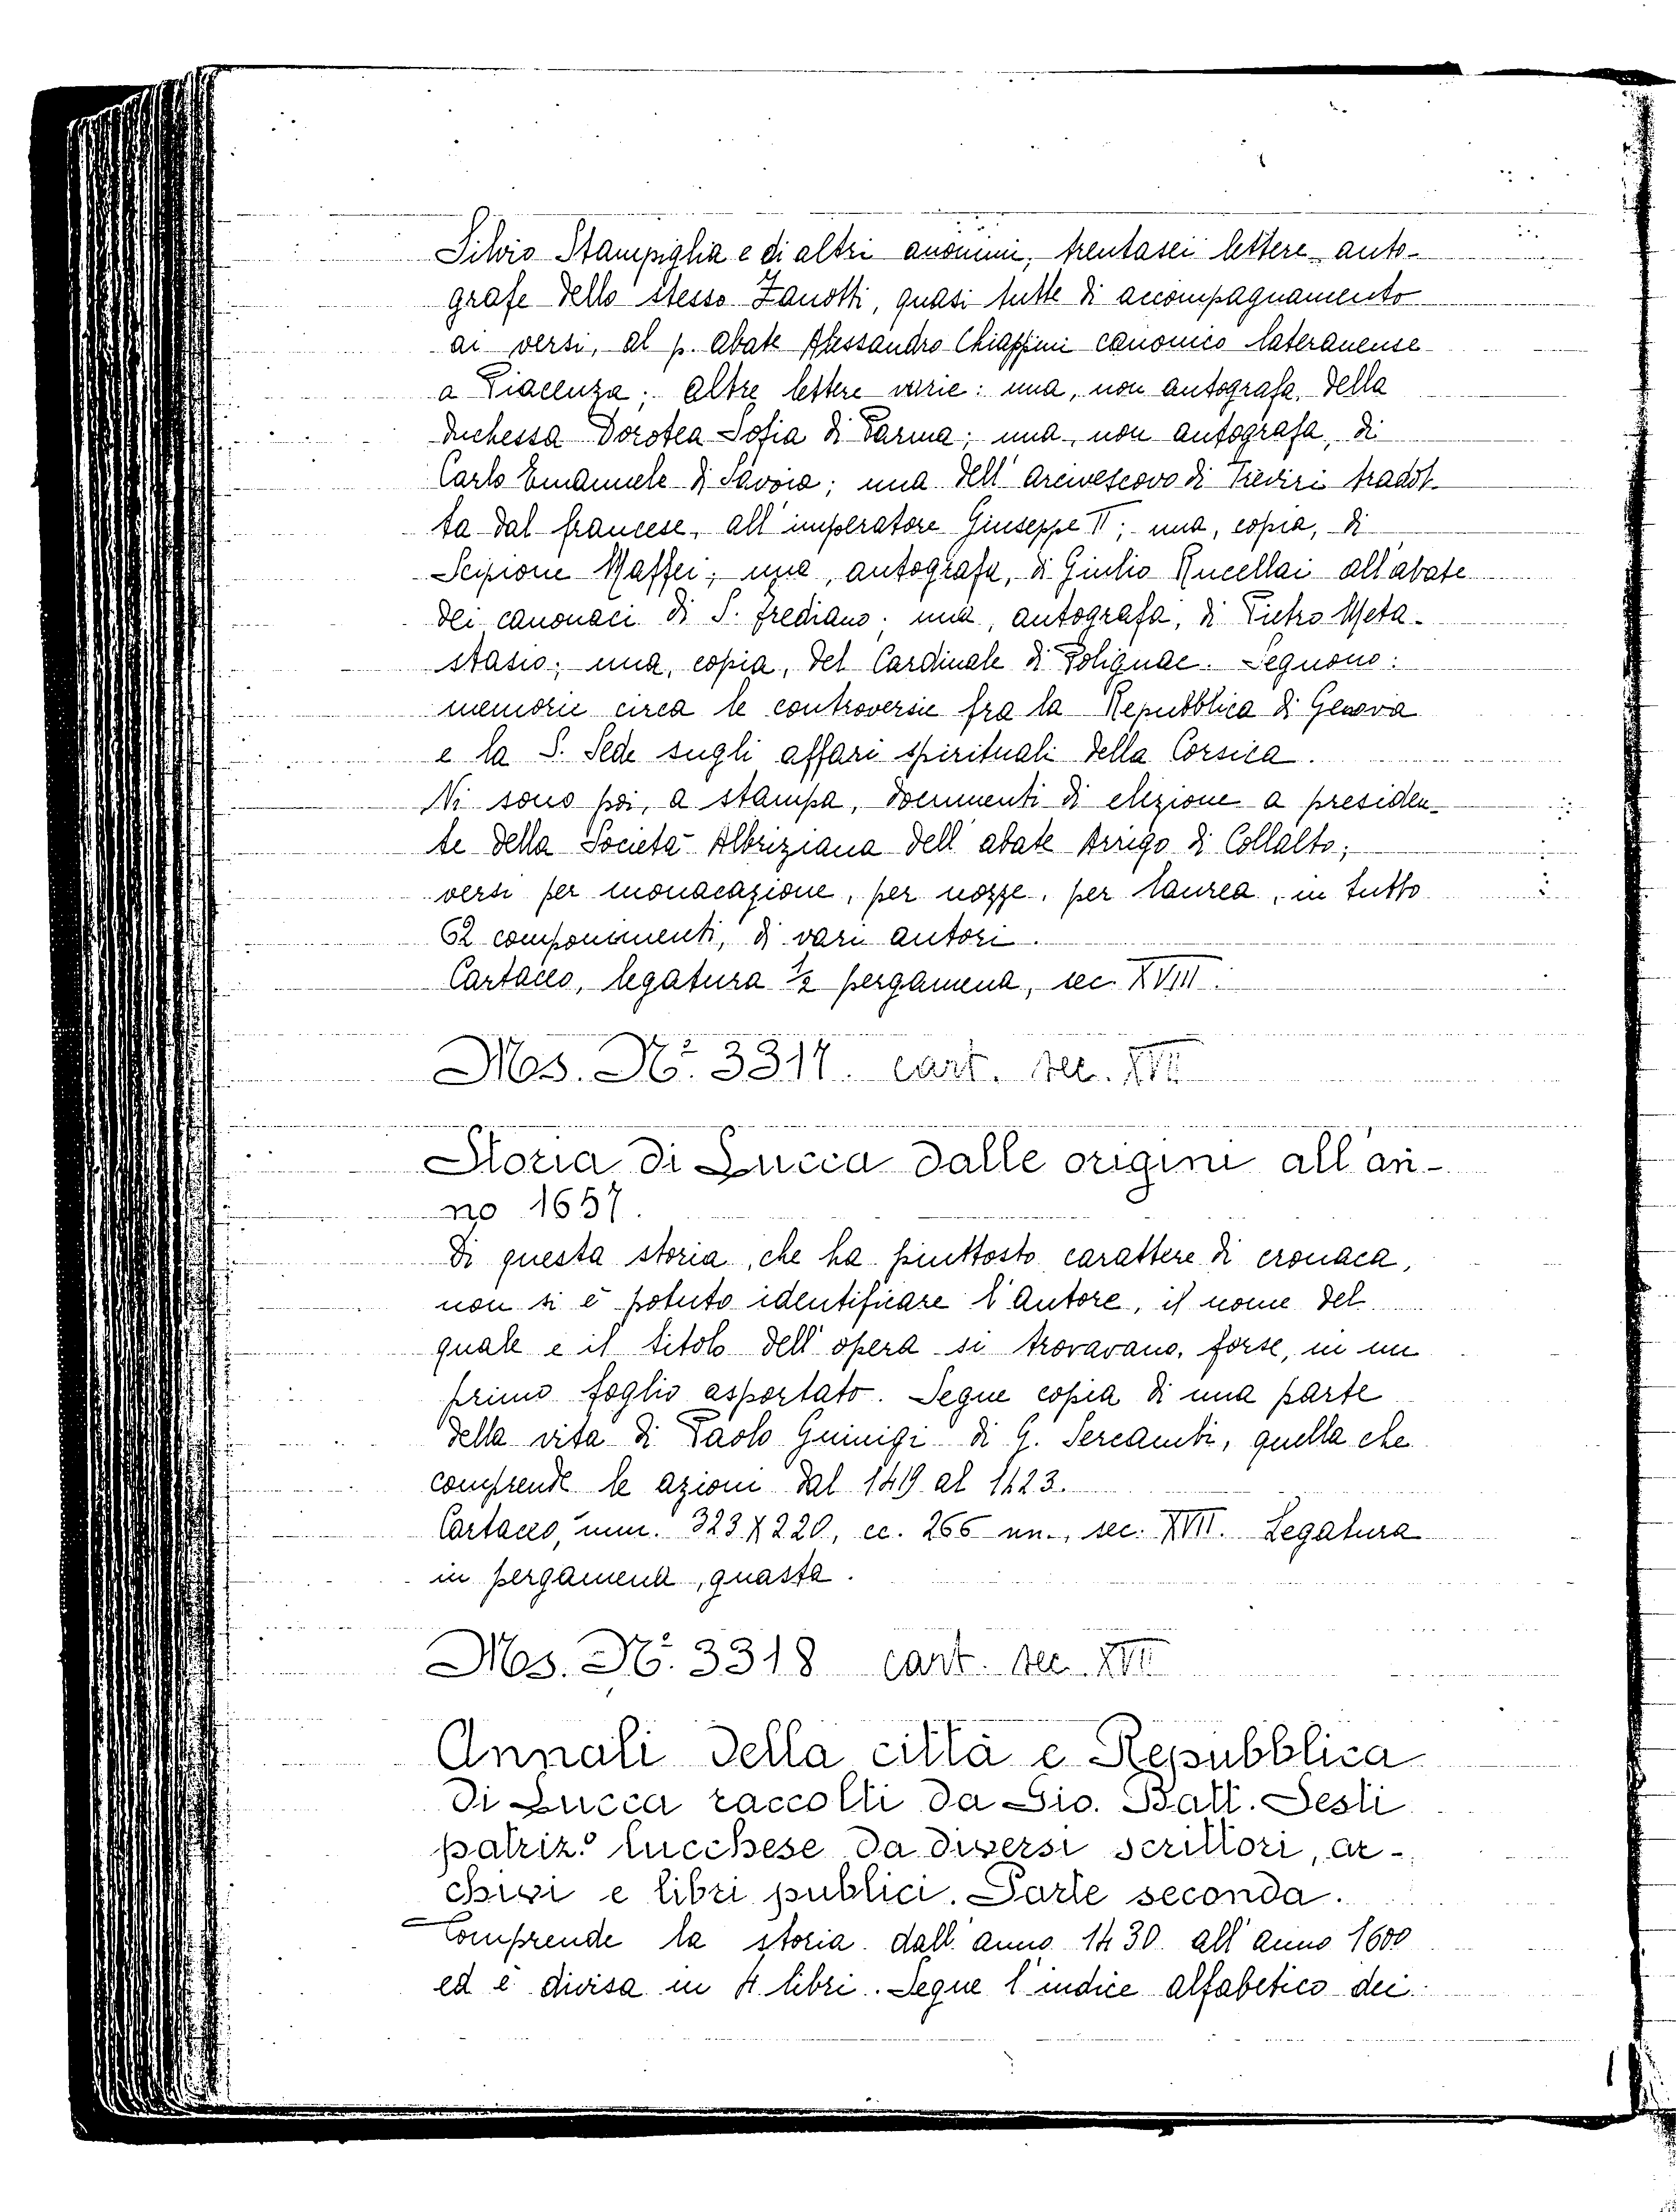 Silvio Stampiglia e di altri anonimi, trentasei lettere auto-
grafe dello stesso Zanotti, quasi tutte di accompagnamento
ai versi, al p. abate Alessandro Chiappini canonico lateranense
a Piacenza; altre lettere varie: una, non autografa, della
duchessa Dorotea Sofia di Parma; una, non autografa, di
Carlo Emanuele di Savoia; una dell'arcivescovo di Treviri tradot-
ta dal francese, all'imperatore Giuseppe II; una, copia, di
Scipione Maffei; una, autografa, di Giulio Rucellai all'abate
dei canonaci di S. Frediano; una, autografa, di Pietro Meta-
stasio; una, copia, del Cardinale di Polignac. Seguono:
memorie circa le controversie fra la Repubblica di Genova
e la S. Sede sugli affari spirituali della Corsica.
Vi sono poi, a stampa, documenti di elezione a presiden-
te della Società Albriziana dell'abate Arrigo di Collalto;
versi per monacazione, per nozze, per laurea, in tutto
62 componimenti, di varii autori.
Cartaceo, legatura ½ pergamena, sec. XVIII.
Ms. N.º 3317. cart. sec. XVII
Storia di Lucca dalle origini all'an-
no 1657.
Di questa storia, che ha piuttosto carattere di cronaca,
non si è potuto identificare l'Autore, il nome del
quale e il titolo dell'opera si trovavano, forse, in un
primo foglio asportato. Segue copia di una parte
della vita di Paolo Guinigi di G. Sercambi, quella che
comprende le azioni dal 1419 al 1423.
Cartaceo, mm. 323 X 220, cc. 266 nn., sec. XVII. Legatura
in pergamena, guasta.
Ms. N.º 3318 cart. sec. XVII
Annali della città e Repubblica
di Lucca raccolti da Gio. Batt. Sesti
patriz.º lucchese da diversi scrittori, ar-
chivi e libri publici. Parte seconda.
Comprende la storia dall'anno 1430 all'anno 1600
ed è divisa in 4 libri. Segue l'indice alfabetico dei